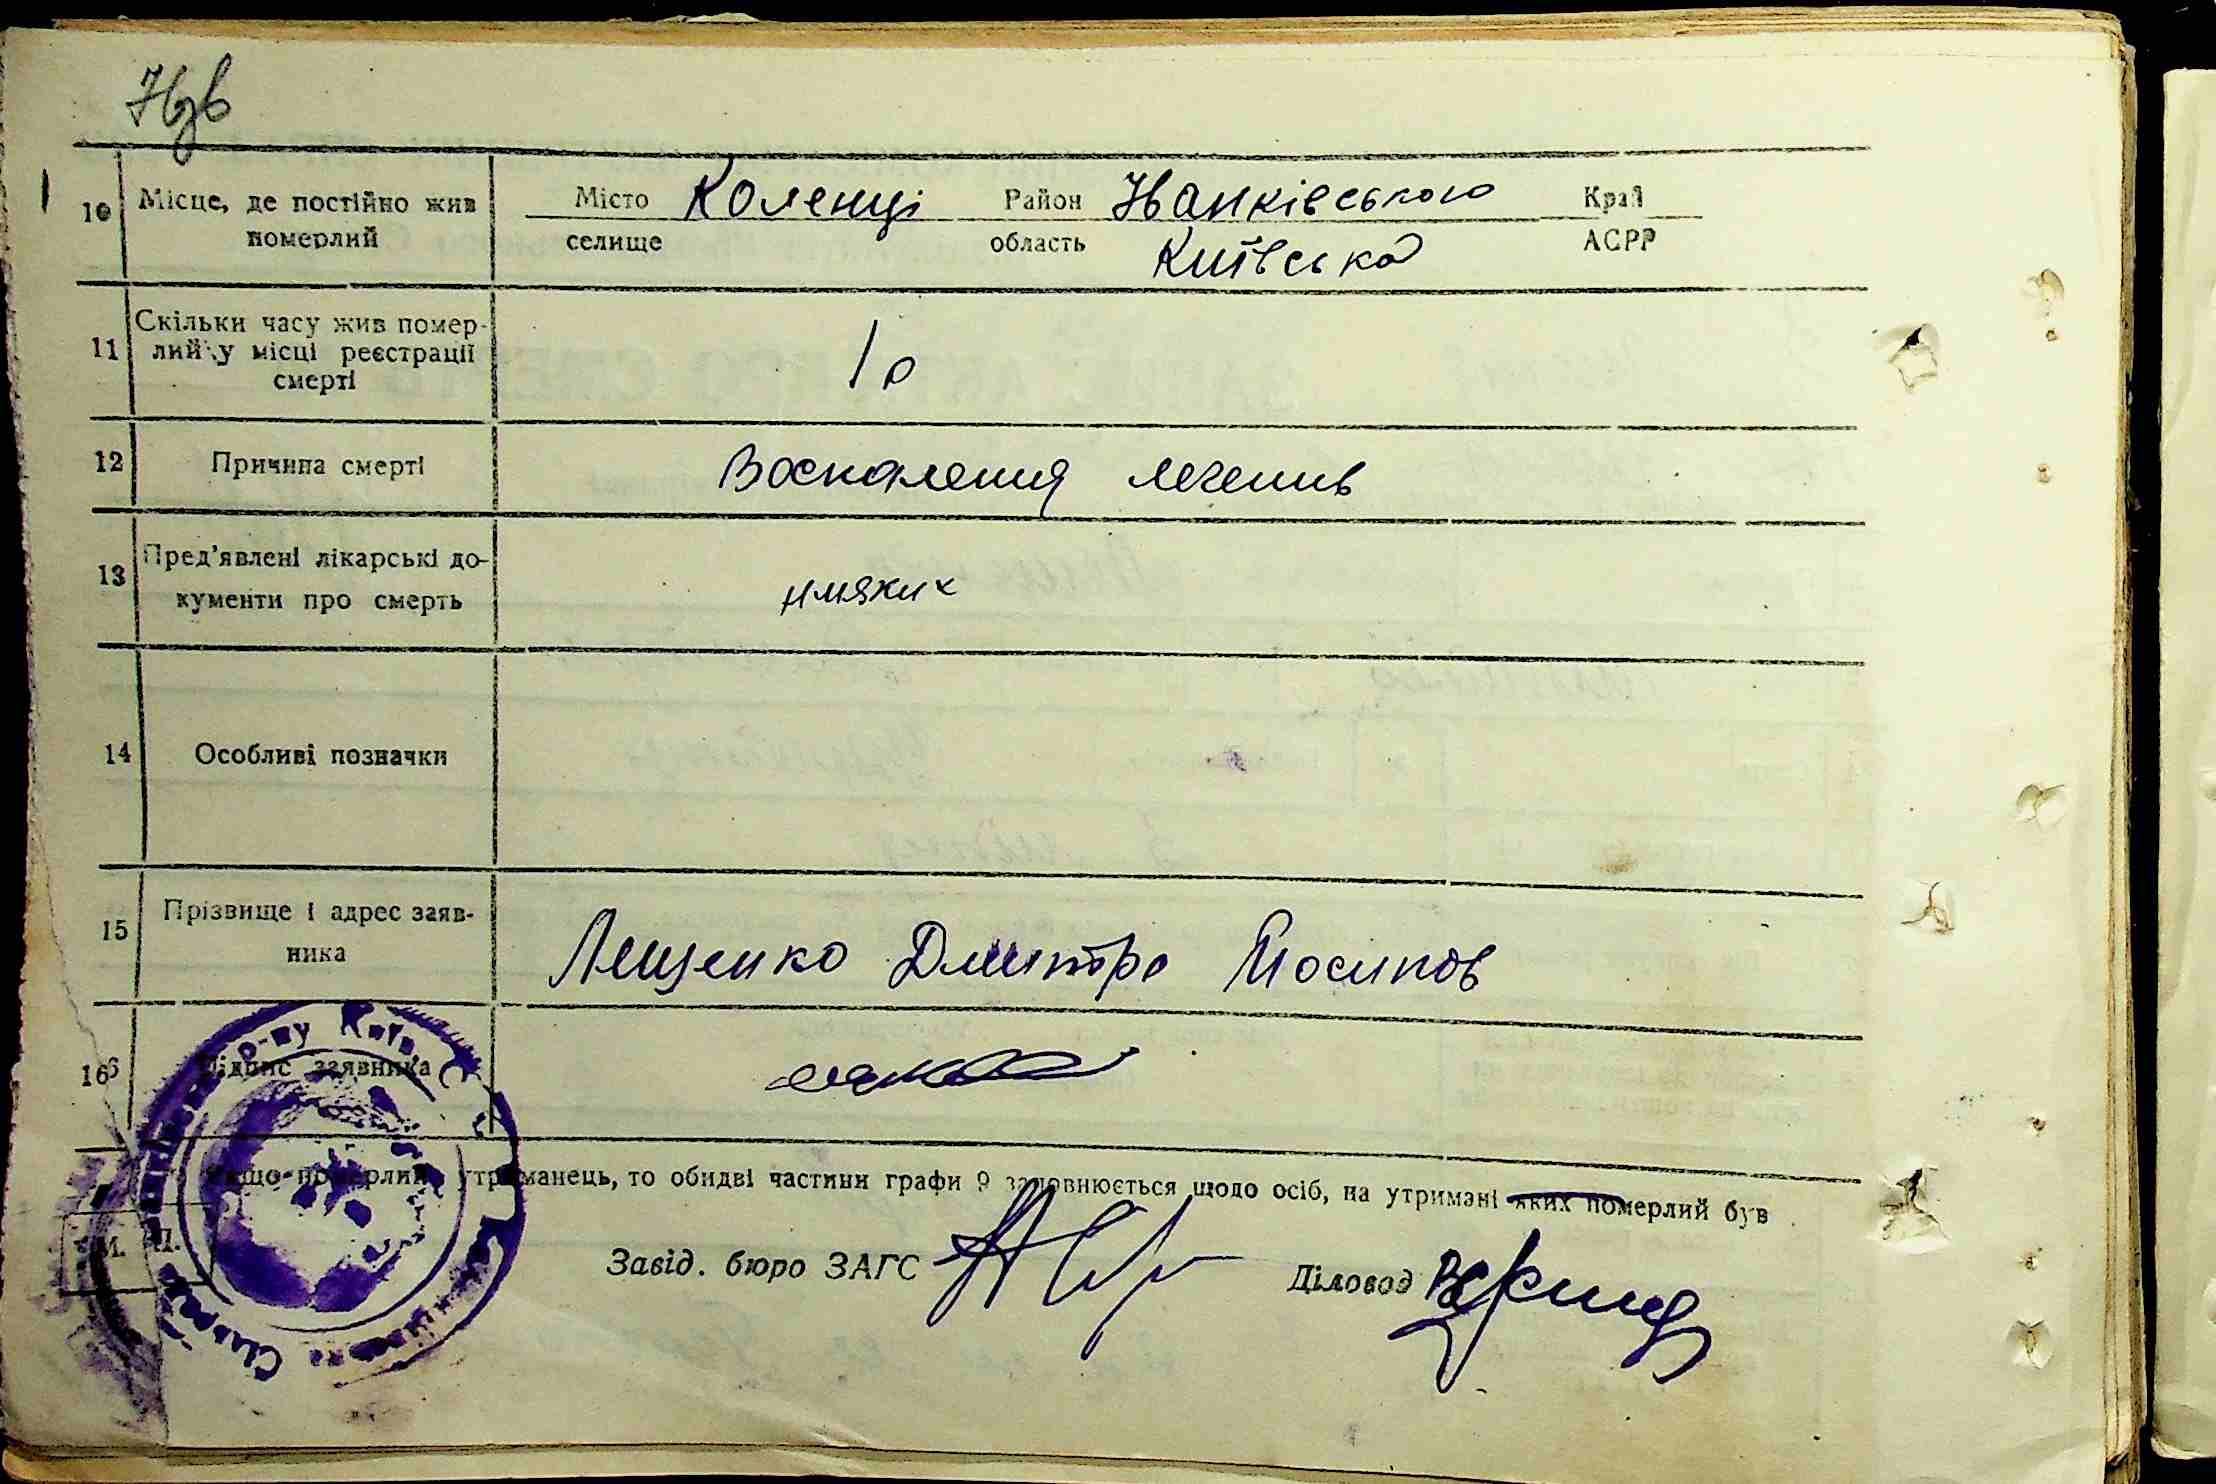 Нзв
10 Місце, де постійно жив померлий
Місто Коленці Район Іванківського Край
селище область Київська АСРР
11 Скільки часу жив помер-
лий у місці реєстрації
смерті
1 р
12 Причина смерті Воспаления легенив
13 Пред'явлені лікарські до-
кументи про смерть
нияких
14 Особливі позначки
15 Прізвище і адрес заяв-
ника
Лещенко Дмитро Йосипов
16 Підпис заявника
Якщо померлий утриманець, то обидві частини графи 9 заповнюється щодо осіб, на утримані яких померлий був
М. П.
Завід. бюро ЗАГС Діловод